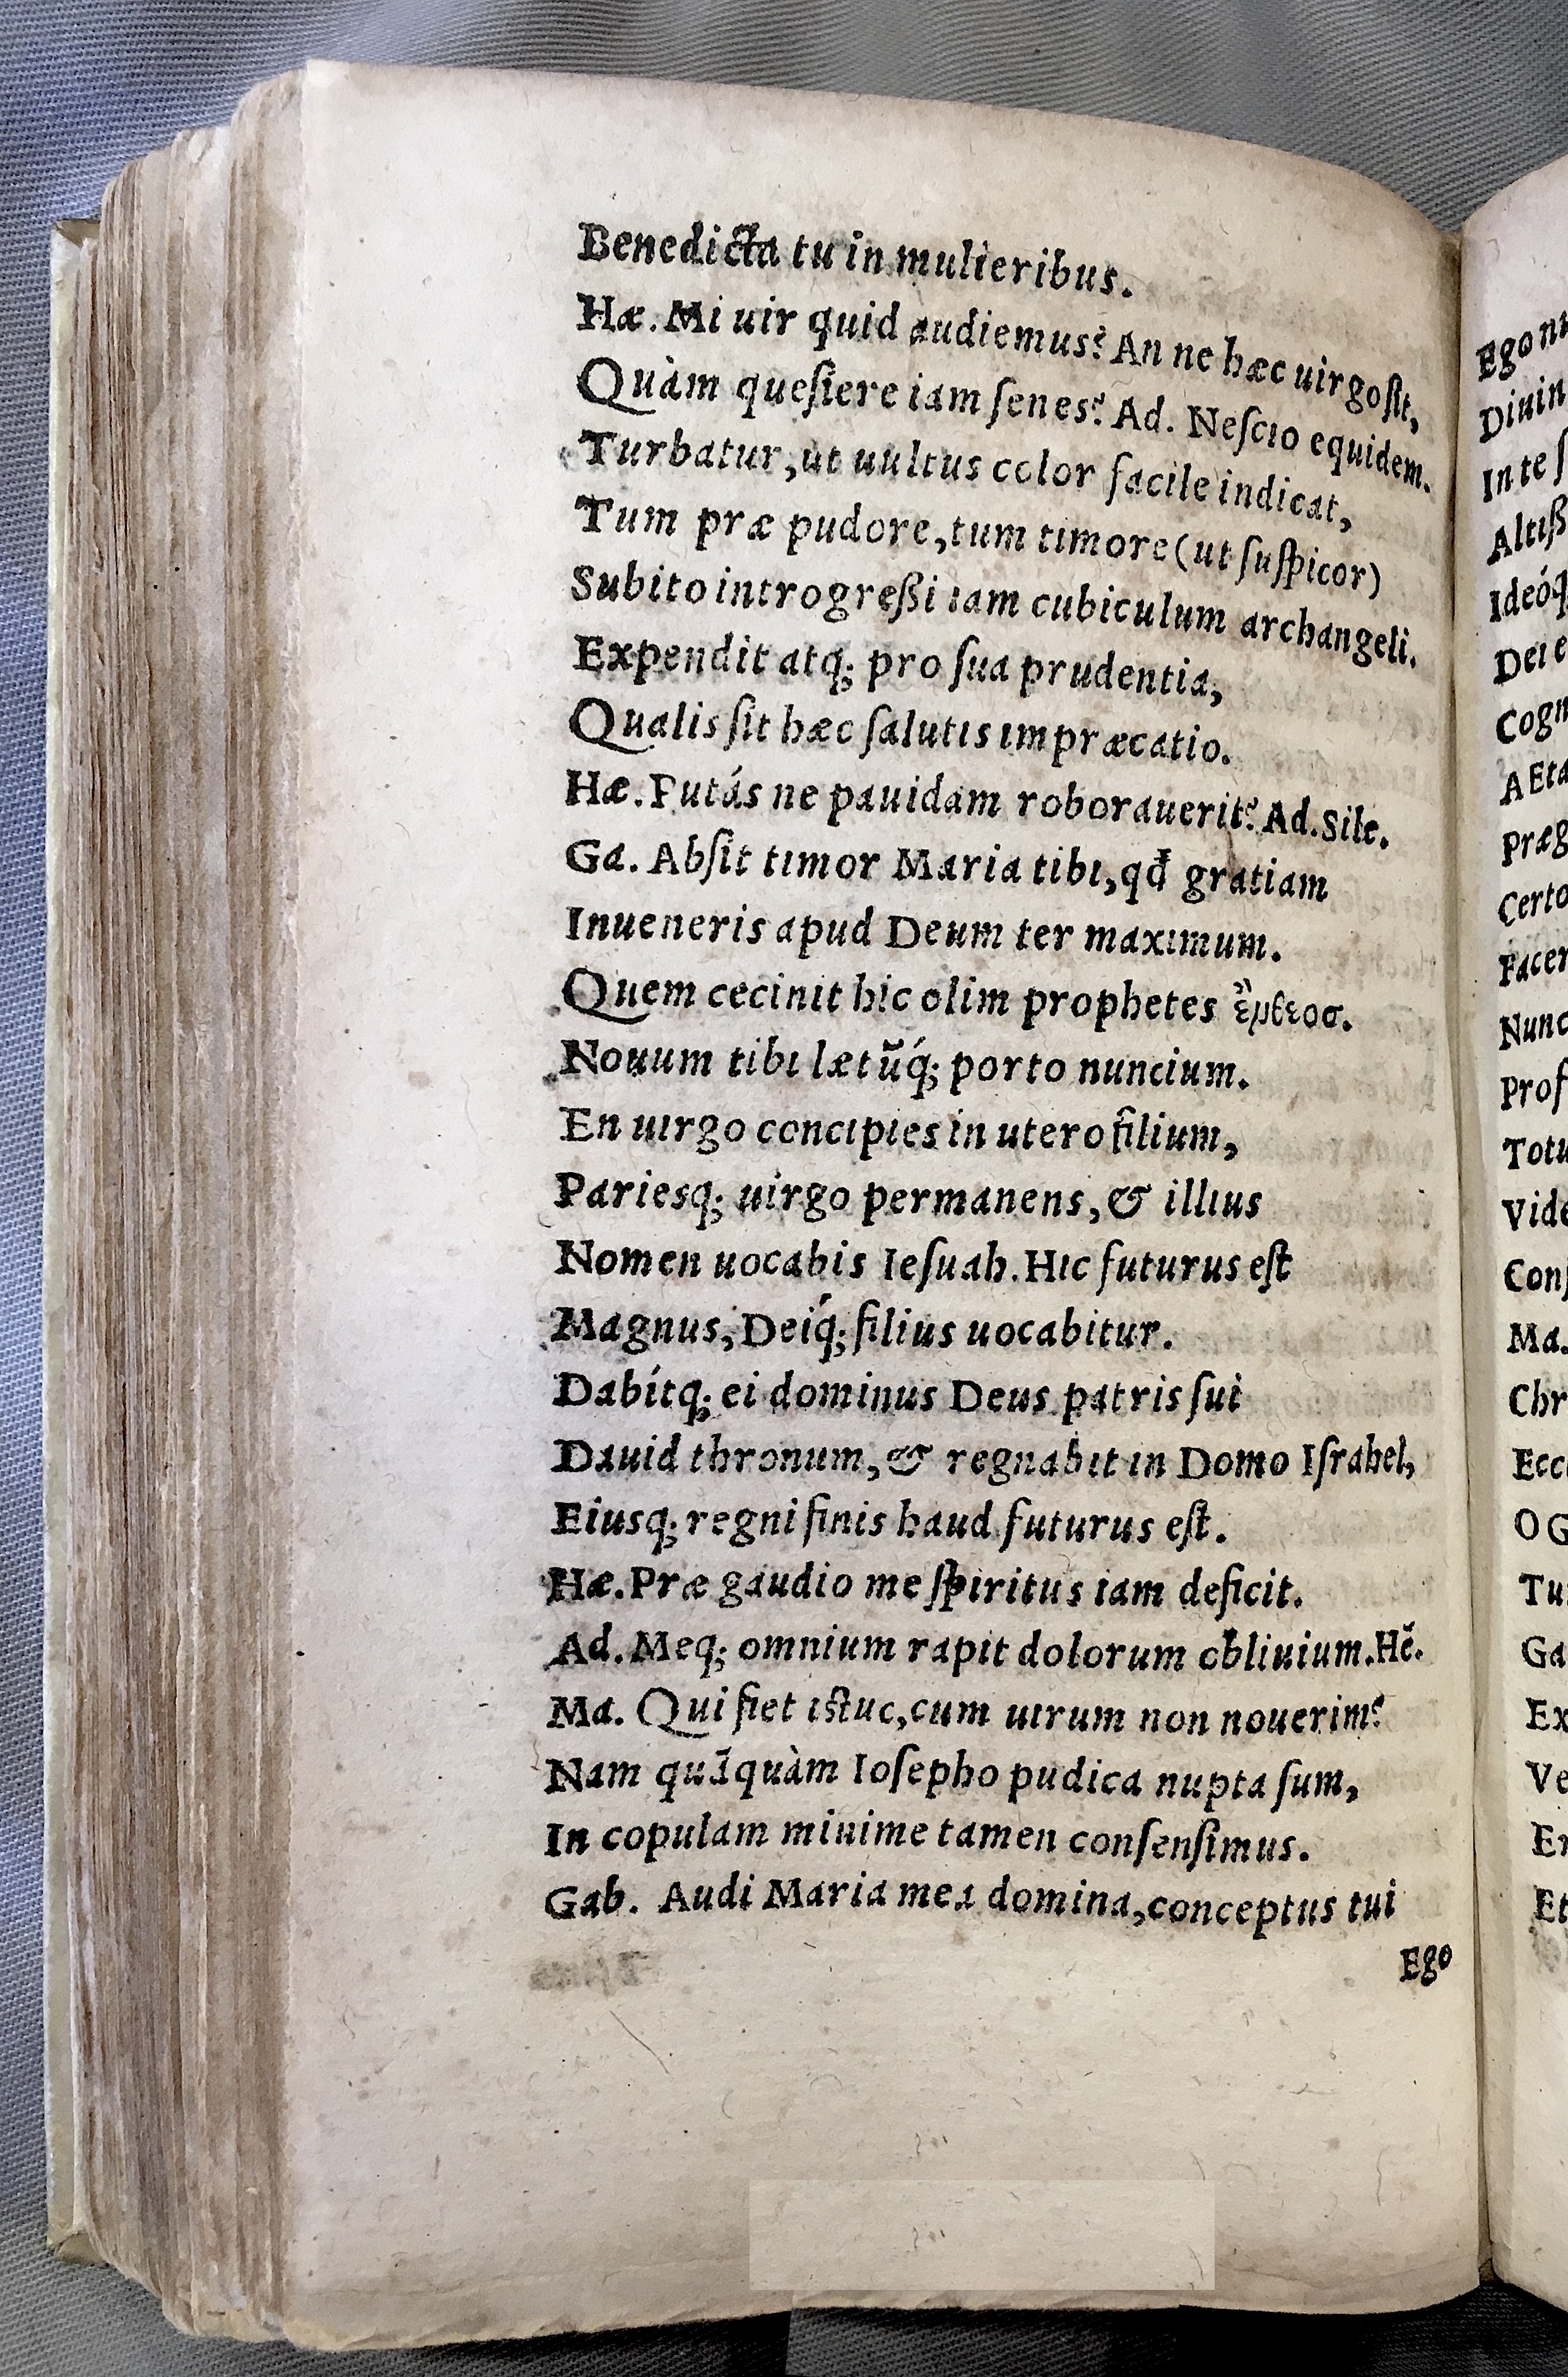 Benedicta tu in mulieribus.
Hæ. Mi uir quid audiemus? An ne hæc uirgo ſit,
Quàm queſiere iam ſenes? Ad. Neſcio equidem.
Turbatur, ut uultus color facile indicat,
Tum præ pudore, tum timore (ut ſuſpicor)
Subito introgreßi iam cubiculum archangeli.
Expendit atq; pro ſua prudentia,
Qualis ſit hæc ſalutis impræcatio.
Hæ. Putás ne pauidam roborauerit? Ad. Sile.
Ga. Abſit timor Maria tibi, qđ gratiam
Inueneris apud Deum ter maximum.
Quem cecinit hic olim prophetes ἔνθεοσ.
Nouum tibi lætũq́; porto nuncium.
En uirgo concipies in utero filium,
Pariesq; uirgo permanens, & illius
Nomen uocabis Ieſuah. Hic futurus eſt
Magnus, Deiq́; filius uocabitur.
Dabítq; ei dominus Deus patris ſui
Dauid thronum, & regnabit in Domo Iſrahel,
Eiusq; regni finis haud futurus eſt.
Hæ. Præ gaudio me ſpiritus iam deficit.
Ad. Meq; omnium rapit dolorum obliuium. Hē.
Ma. Qui fiet iſtuc, cum uirum non nouerim?
Nam quāquàm Ioſepho pudica nupta ſum,
In copulam miuime tamen conſenſimus.
Gab. Audi Maria mea domina, conceptus tui
Ego
Ego
Diuin
In te
Altiß
Ideóq
Dei e
Cogn
AEta
Præg
Certo
Facer
Nunc
Prof
Totu
Vide
Conſ
Ma.
Chr
Ecc
O G
Tu
Ga
Ex
Ve
Et